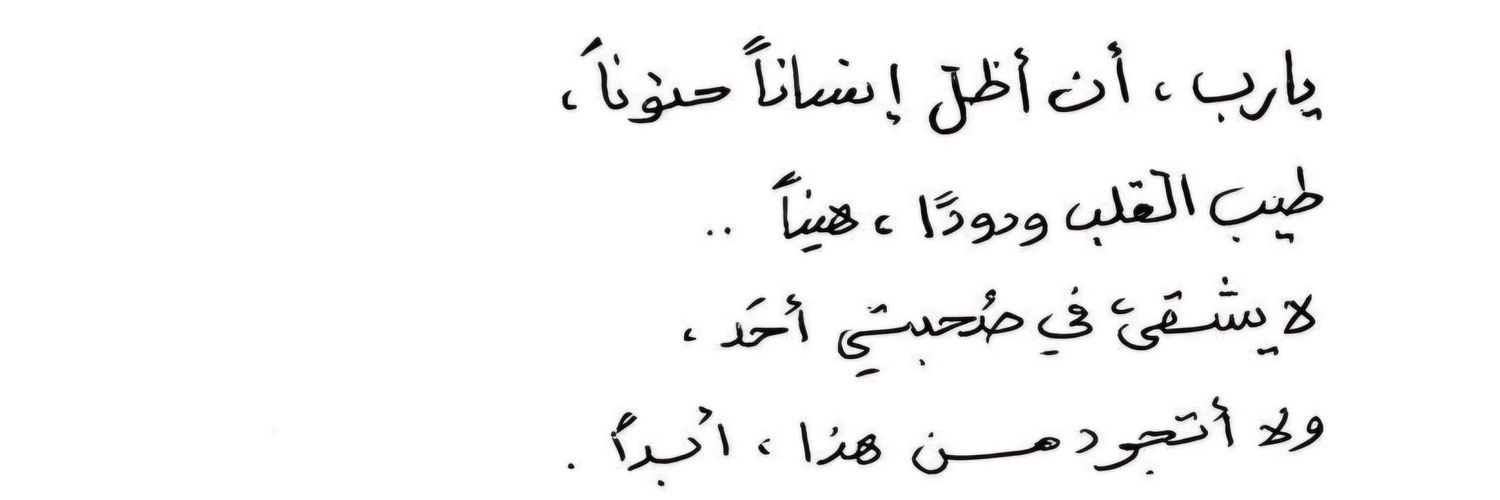 يارب ، أن أظل إنساناً حنوناً ،
طيب القلب ودودًا ، هيناً ..
لا يشقىٰ في صُحبتي أحَد ،
ولا أتجرد من هذا ، أبداً .